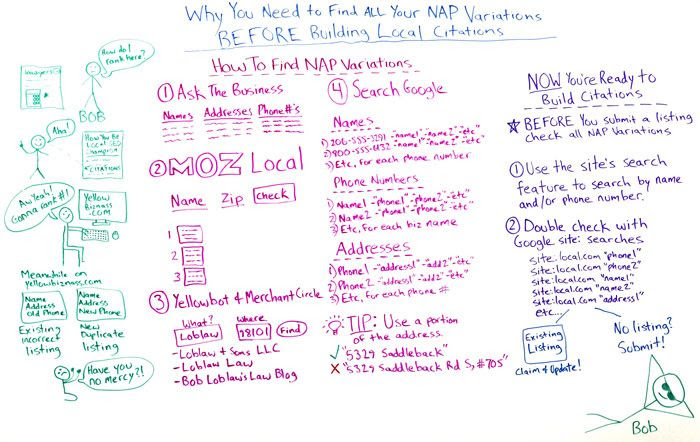 Why You Need to Find ALL Your NAP Variations
BEFORE Building Local Citations
How do I
rank here?
BOB
Aha!
How You Be
Local SEO
Champion
CITATIONS
Aw Yeah!
Gonna rank #1!
Yellow
Biznass
.com
Meanwhile on
yellowbiznass.com
Name
Address
Old Phone
Name
Address
New Phone
Existing
incorrect
listing
New
Duplicate
listing
Have you
no mercy?!
How To Find NAP Variations
① Ask The Business
Names Addresses Phone#'s
② MOZ Local
Name Zip check
1
2
3
③ Yellowbot & MerchantCircle
What? Where
Loblaw 98101 Find
- Loblaw & Sons LLC
- Loblaw Law
- Bob Loblaw's Law Blog
④ Search Google
Names
1) 206-555-3291 -"name1" -"name2" -"etc"
2) 800-555-6132 -"name1" -"name2" -"etc"
3) Etc, for each phone number
Phone Numbers
1) Name1 -"phone1" -"phone2" -"etc"
2) Name2 -"phone1" -"phone2" -"etc"
3) Etc, for each biz name
Addresses
1) Phone1 -"address1" -"add2" -"etc"
2) Phone2 -"address1" -"add2" -"etc"
3) Etc, for each phone #
TIP: Use a portion
of the address.
✓ "5329 Saddleback"
✗ "5329 Saddleback Rd S, #705"
NOW You're Ready to
Build Citations
★ BEFORE You submit a listing
check all NAP Variations
① Use the site's search
feature to search by name
and/or phone number.
② Double check with
Google site: searches
site:local.com "phone1"
site:local.com "phone2"
site:local.com "name1"
site:local.com "name2"
site:local.com "address1"
etc...
Existing
Listing
Claim & Update!
No listing?
Submit!
Bob